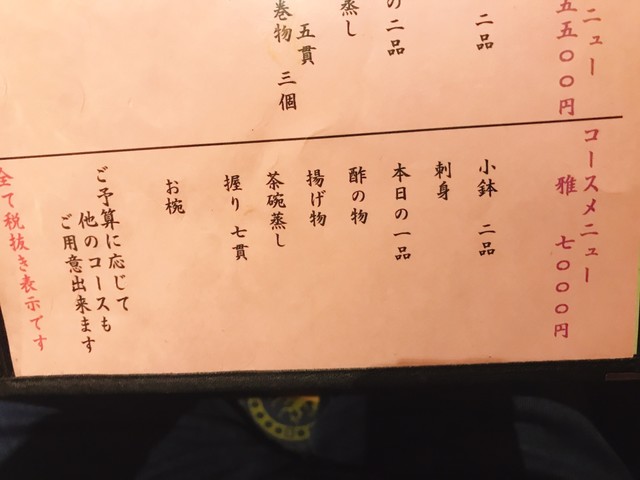 ニュー
五五〇〇円
二品
の二品
蒸し
五貫
巻物 三個
コースメニュー
雅 七〇〇〇円
小鉢 二品
刺身
本日の一品
酢の物
揚げ物
茶碗蒸し
握り 七貫
お椀
ご予算に応じて
他のコースも
ご用意出来ます
全て税抜き表示です